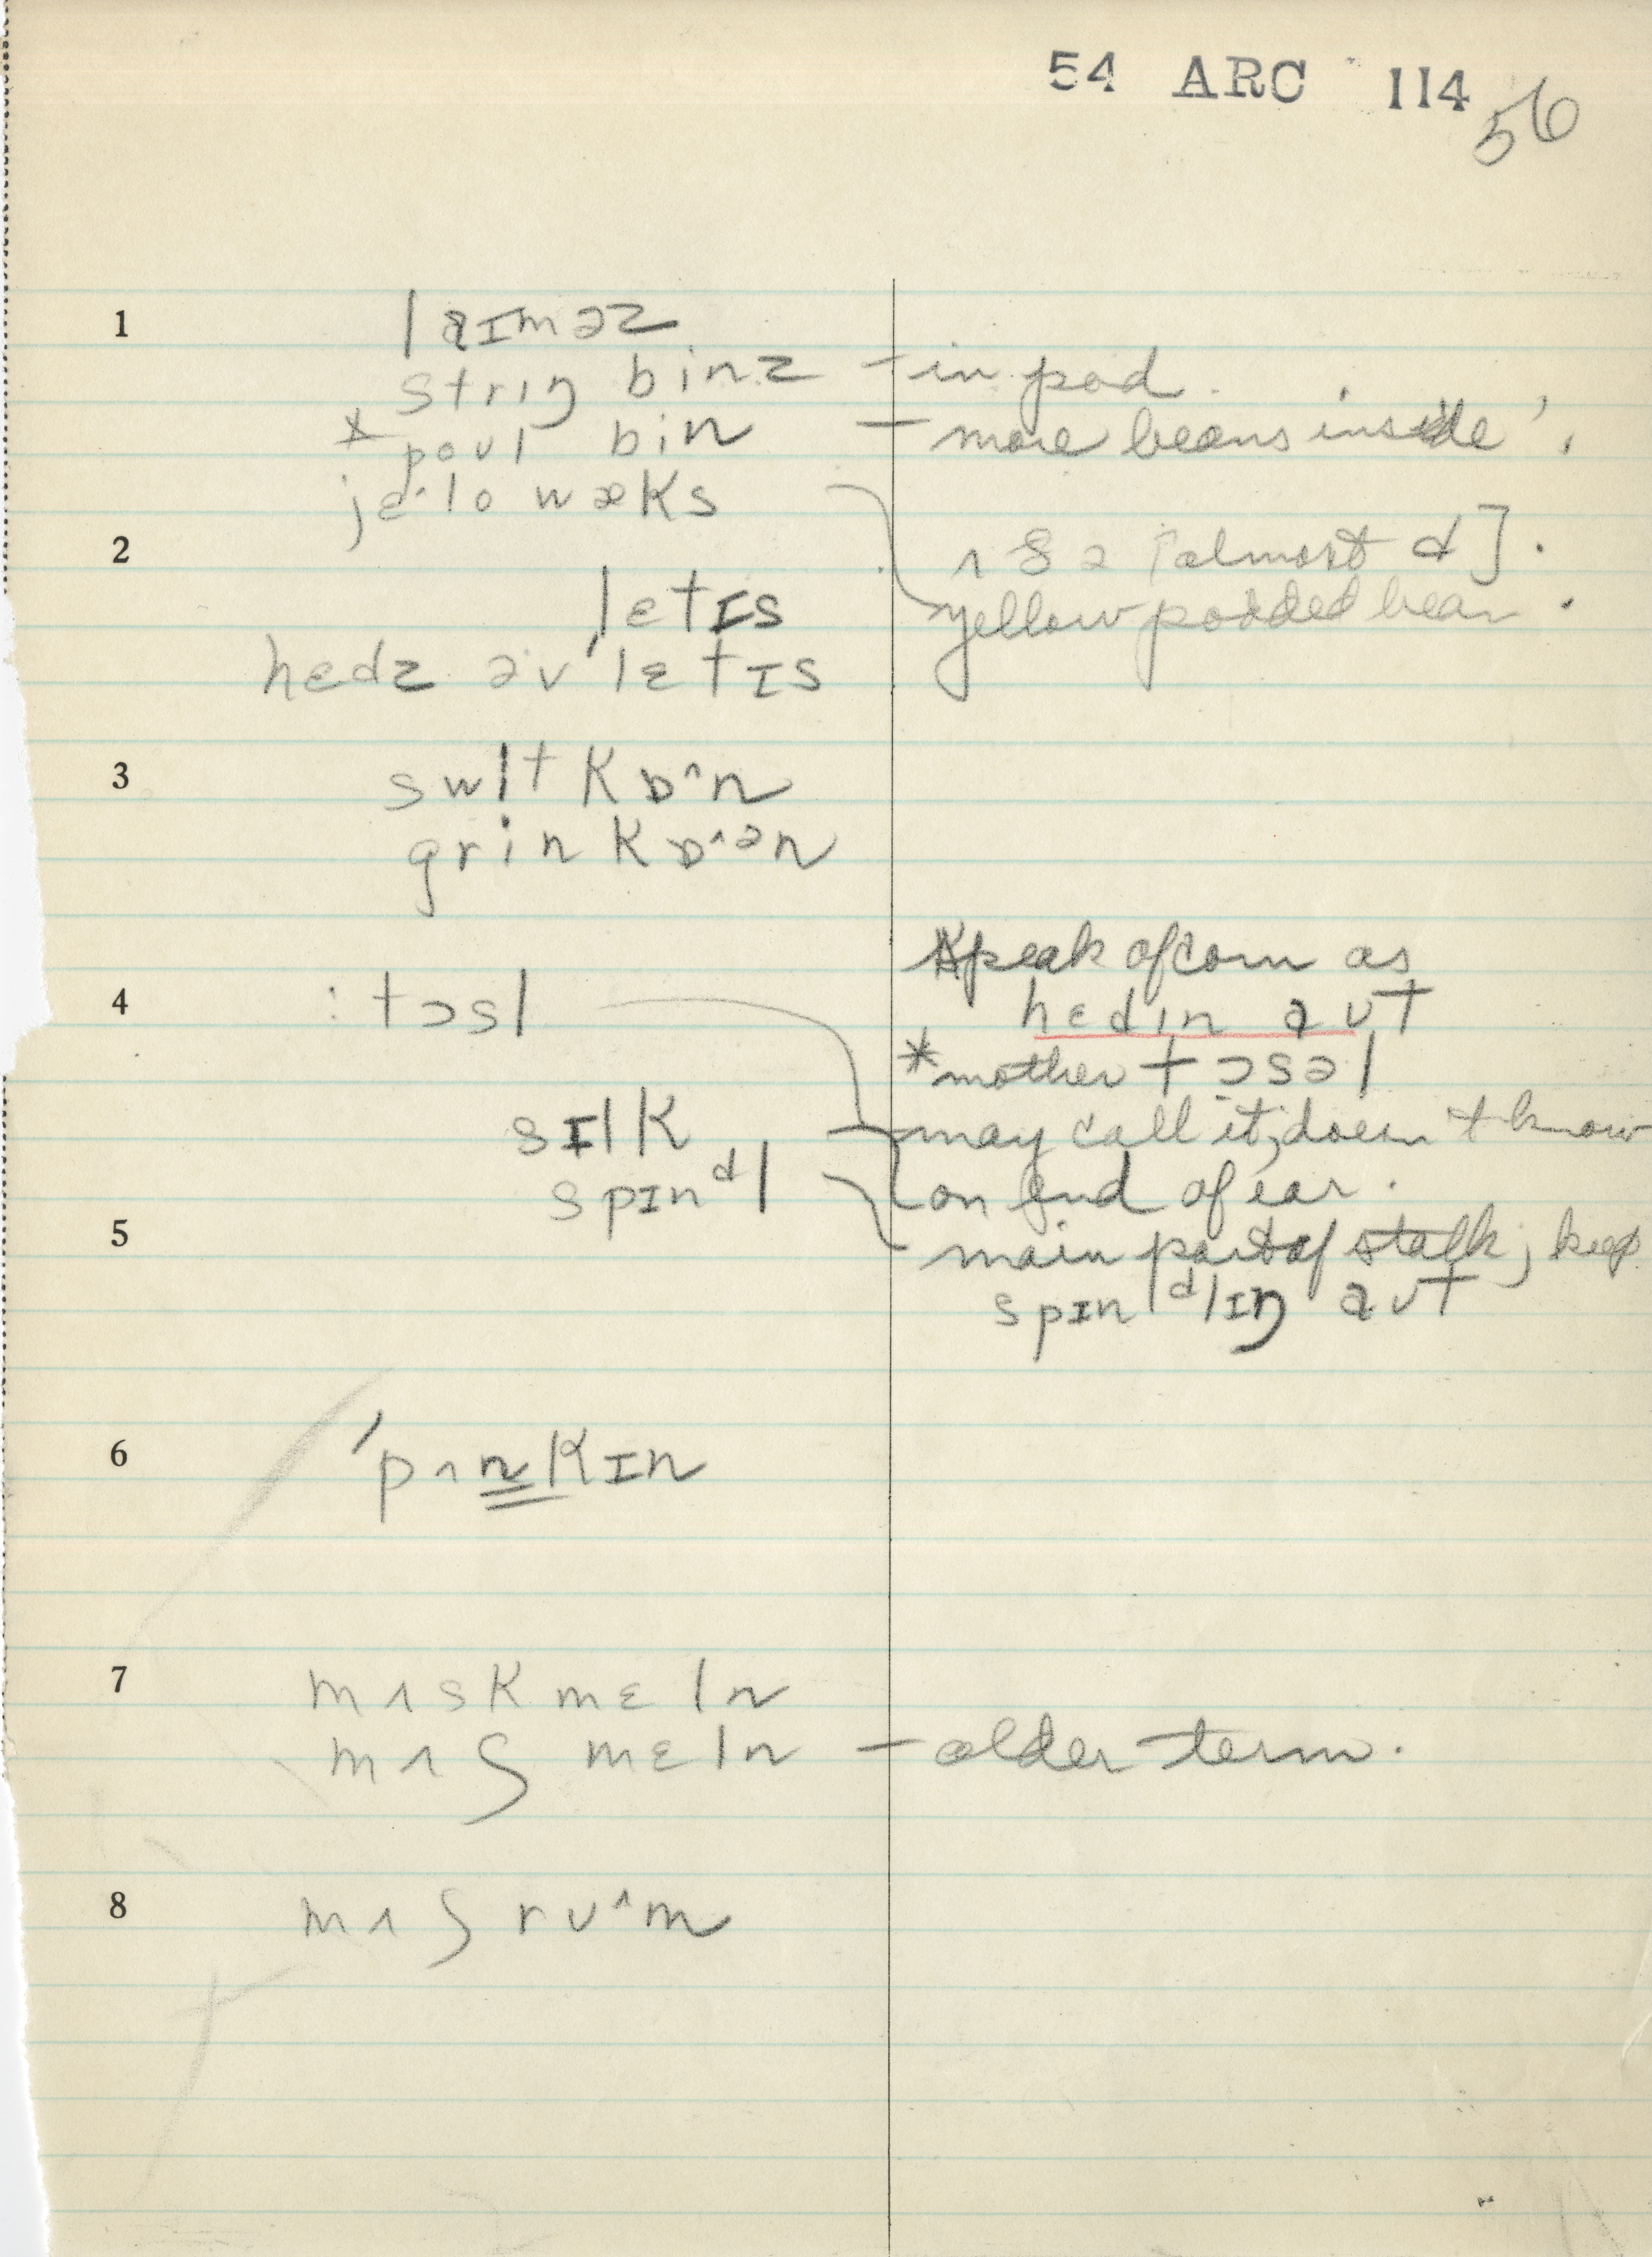 54 ARC 114
56
1 laɪməz
strɪŋ binz – in pod.
* poʊl bin – more beans inside',
jɛ·lo wæks
2 ʌ & ə [almost d].
lɛtɪs yellow podded bean.
hɛdz əv'lɛtɪs
3 swit kɒ^n
grin kɒ^ən
Speak of corn as
4 : tɔsl hɛdɪn aʊt
*mother tɔsəl
sɪlk – may call it, doesn't know
spɪnᵈl on end of ear.
5 main part of stalk; keep
spɪnᵈlɪŋ aʊt
6 'pʌnkɪn
7 mʌskmɛln
mʌʃ mɛln – older term.
8 mʌʃrʊ^m